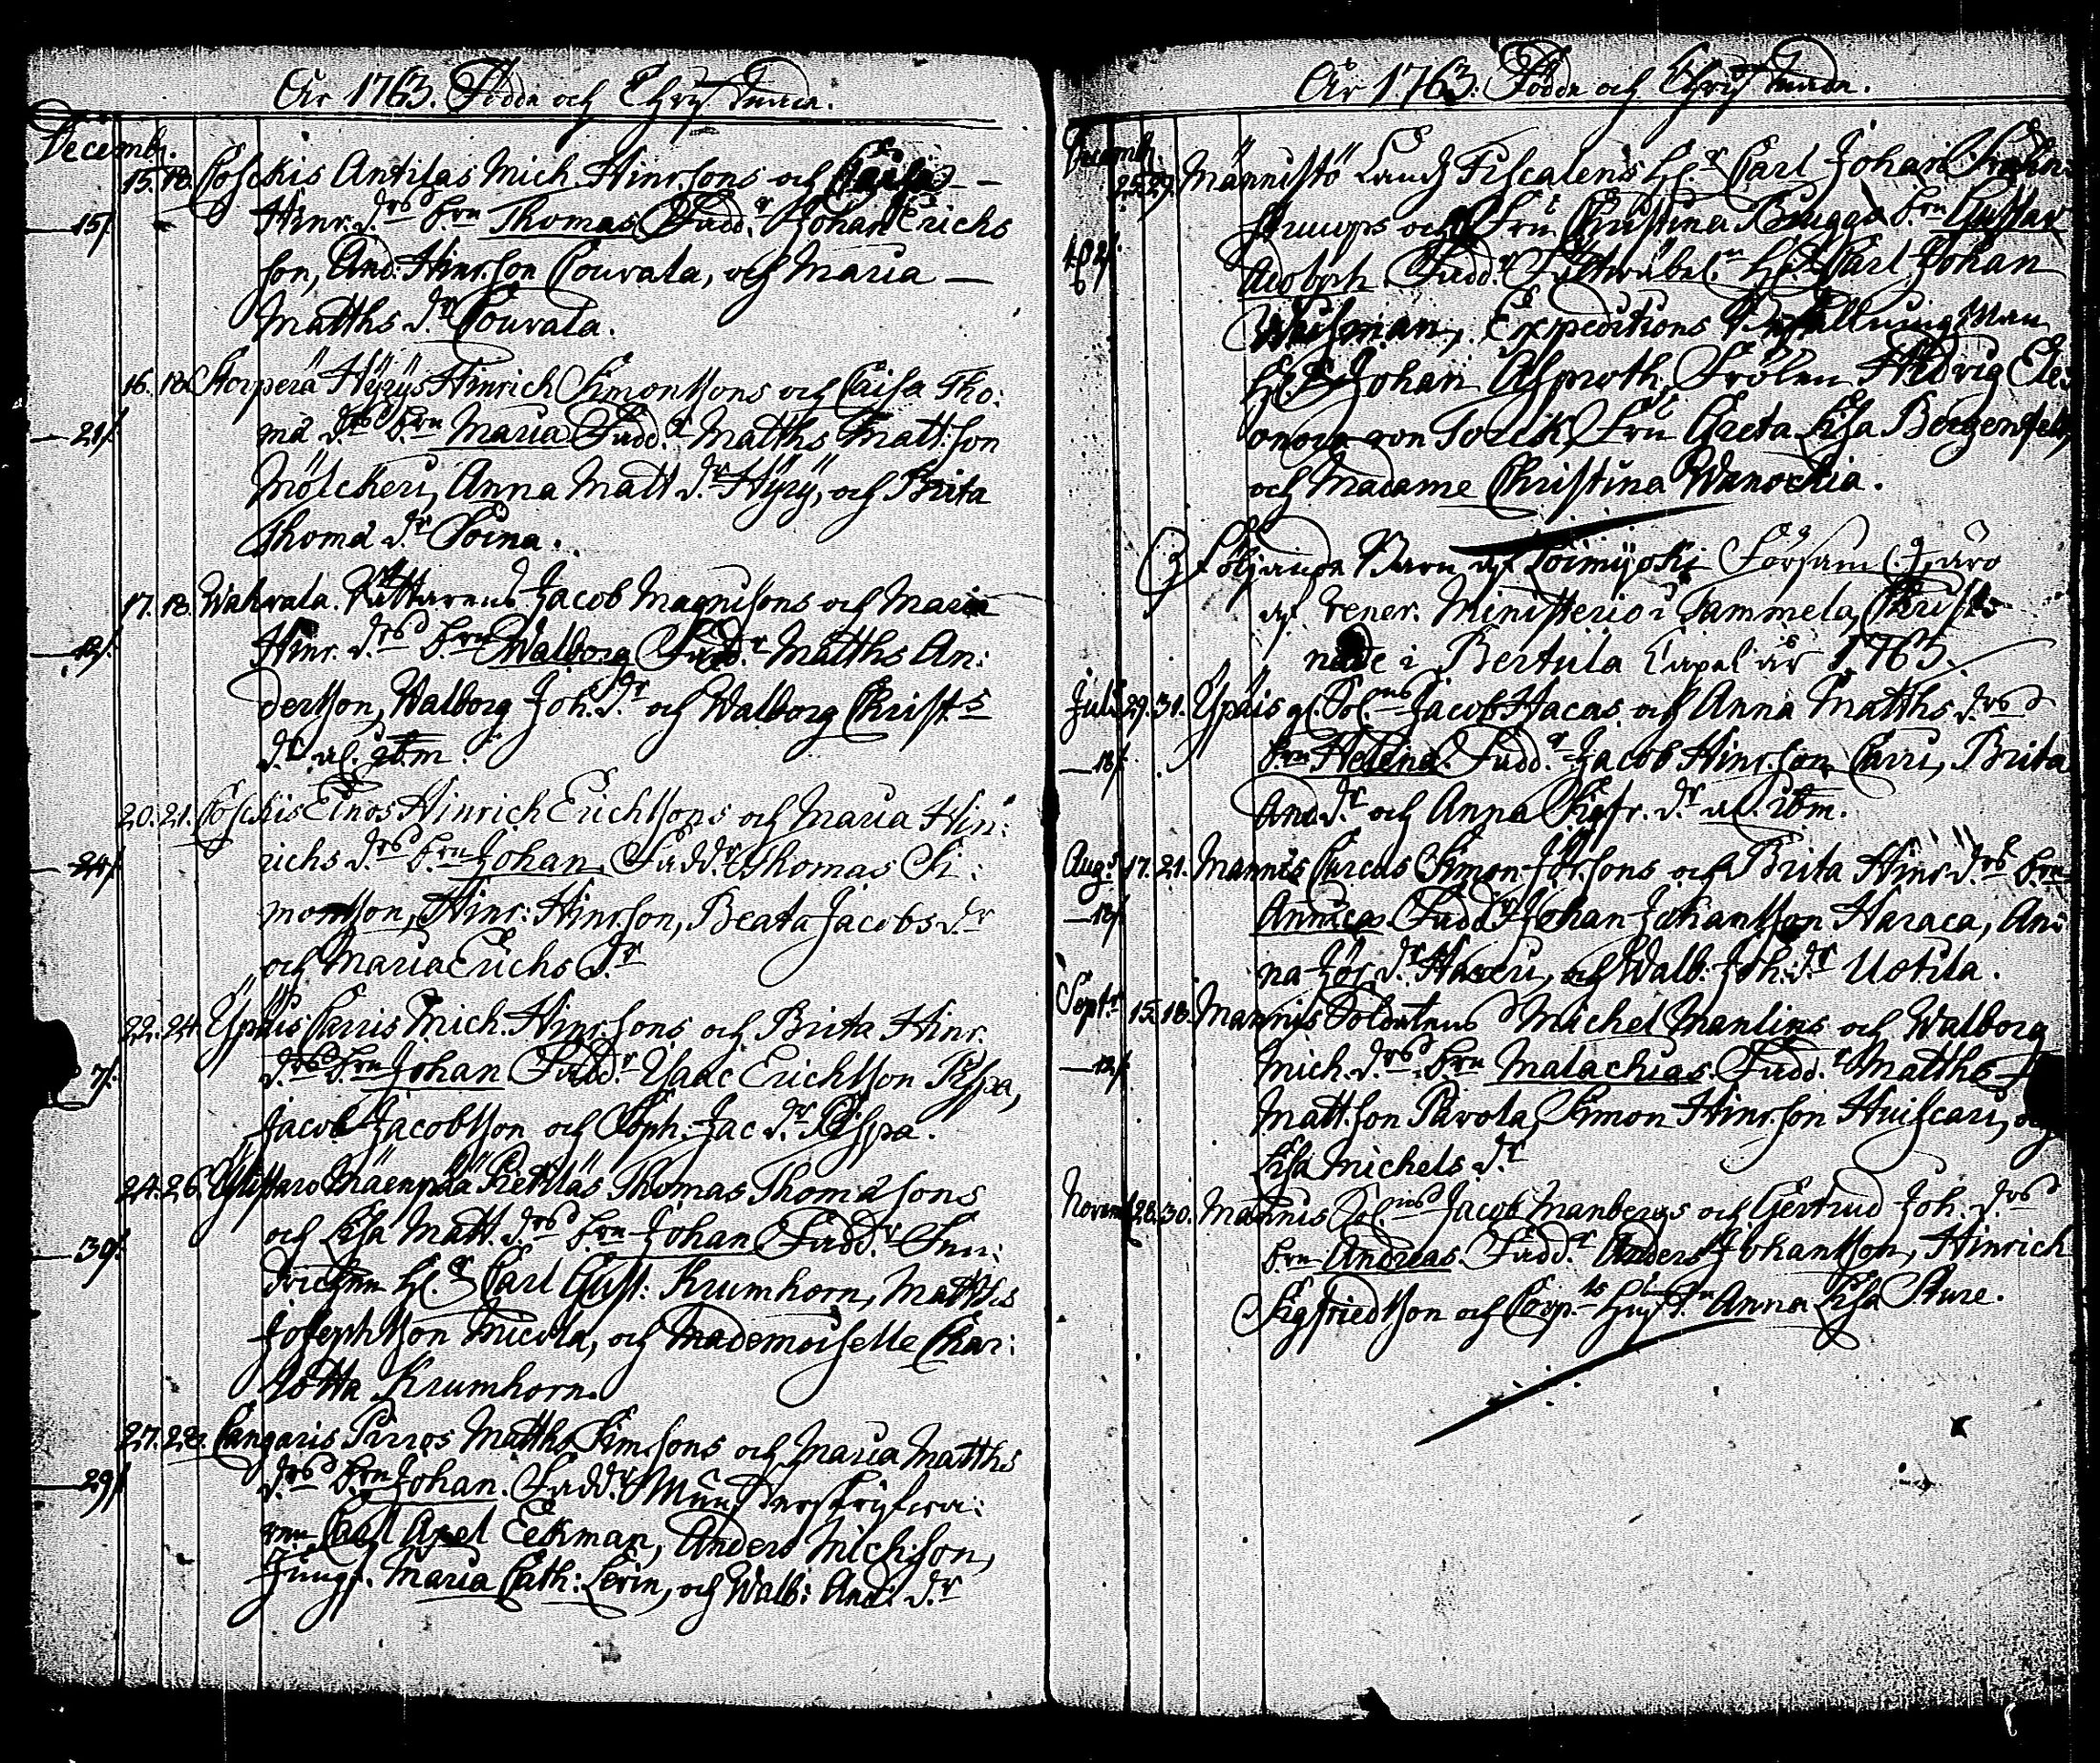 År 1763. Födda och Christnade.
Decembr.
15. 18. Coskis Antilas Mich. Hinr.sons och Caisa
15/. Hinr. d:rs b:rn Thomas. Fadd.r Johan Erichs
son, And: Hinr.son Couvala, och Maria
Matths d:r Couvala.
16. 18. Storperä Hÿrÿs Hinrich Simonssons och Caisa Tho:
21/. mæ d:rs b:rn Maria. Fadd.r Matths Matt:son
Mölckeri, Anna Matt d:r Hÿrÿ, och Brita
Thomæ d:r Poina.
17. 18. Wahvala Jacob Magnissons och Maria
Hinr. d:rs b:rn Walborg. Fadd.r Matths An:
dersson, Walborg Joh. d:r och Walborg Christ:s
d:r al. ibm.
20. 21. Coskis Einos Hinrich Erichssons och Maria Hin:
24/. richs d:rs b:rn Johan. Fadd.r Thomas Si:
monsson, Hinr: Hinr.son, Beata Jacobs d:r
och Maria Erichs d:r
22. 24. Ÿpäis Carris Mich. Hinr.sons och Brita Hinr.
7/. d:rs b:rn Johan. Fadd.r Isaac Erichsson Pispa,
Jacob Jacobsson och Soph. Jac d:r Pispa.
24. 26. Mäenpää Pietiläs Thomas Thomæ sons
30/. och Lisa Matt. d:rs b:rn Johan. Fadd.r Fen:
drichen H:r Carl Gust: Krumhorn, Matths
Josephsson Micola, och Mademoiselle Char:
lotta Krumhorn.
27. 28. Cangaris Pirros Matths Sim.sons och Maria Matths
29/. d:rs b:rn Johan. Fadd.r Munsterskrifwa:
ren Carl Axel Eekman, Anders Mich:son,
Jungf. Maria Cath: Levin, och Walb: And. d:r
År 1763. Födda och Christnade.
Decemb.
25. 29. Männistö Landz Fiscalens H:r Carl Johan
och Fru Christina Brugge b:rn Gustav
Adolph. Fadd.r Fältwäbel:n H:r Carl Johan
Expeditions Befallningsman
H:r Johan Alfproth, Frölen Hedvig Ele:
onora von Torck, Fru Greta Lisa Bergenfelt,
och Madame Christina Wanockia.
Följande Barn af Loimijoki Församl. äro
af Vener. Ministerio i Tammela Christ:
nade i Bertula Capel år 1763.
Julii 29. 31. Ÿpäis gl. Sol:ns Jacob Hacas och Anna Matths d:rs
18/. b:rn Helena. Fadd.r Jacob Hinr.son Carri, Brita
And. d:r och Anna Sigfr. d:r al. ibm.
Aug: 17. 21. Mannis Curcas Simon Jör.sons och Brita Hinr. d:rs b:rn
18/. Annica. Fadd.r Johan Johansson Haraca, An:
na Jör. d:r Haveri, och Walb. Joh: d:r Uotila.
Sept:r 15. 18. Mannis Soldatens Michel Manlins och Walborg
12/. Mich. d:rs b:rn Malachias. Fadd.r Matths
Matt.son Pavola, Simon Hinr.son Huiscari, och
Lisa Michels d:r
Novemb. 28. 30. Mannis Sol:ns Jacob Manbergs och Gertrud Joh. d:rs
b:rn Andreas. Fadd.r Anders Johansson, Hinrich
Sigfriedsson och Corp:ls Hust:n Anna Lisa Sture.